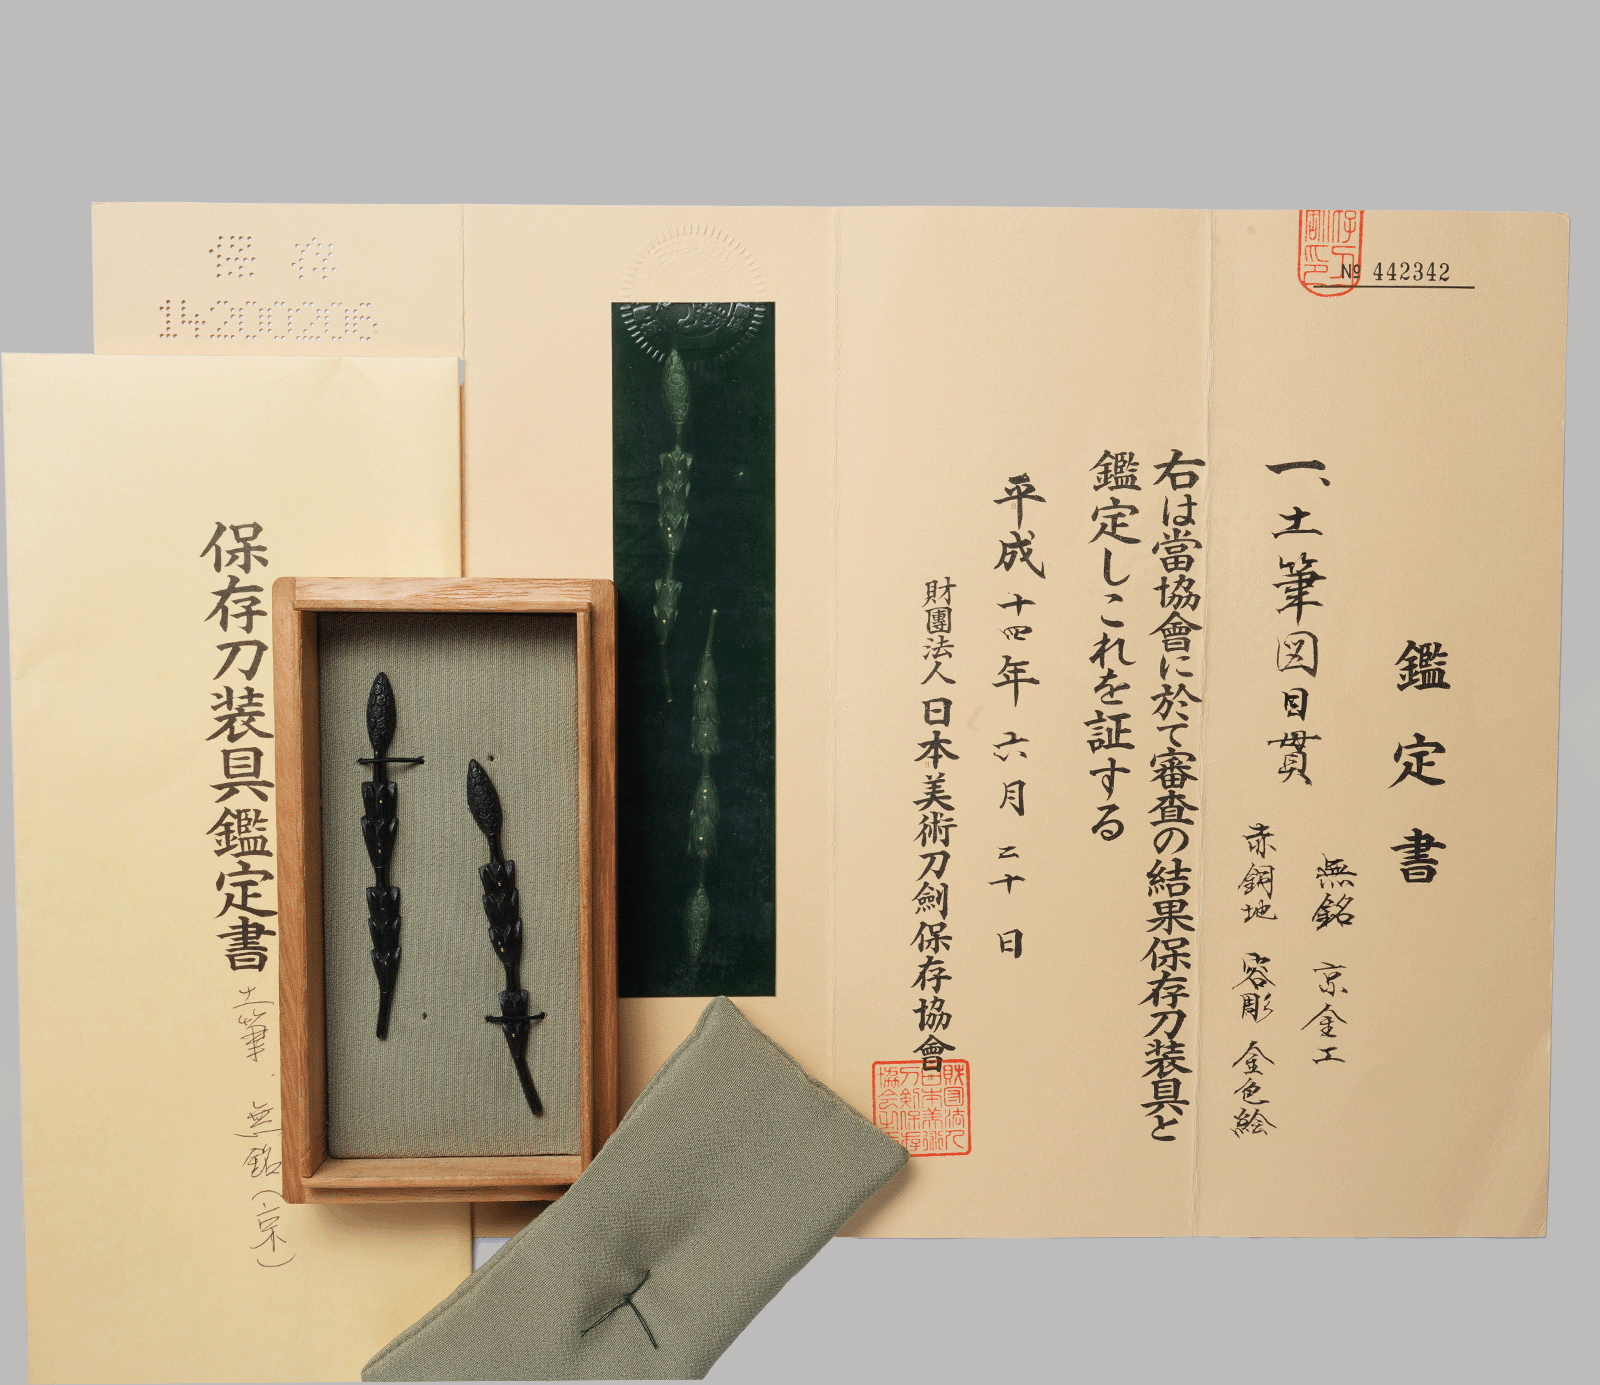 鑑定書
一、土筆図目貫
無銘 京金工
赤銅地 容彫 金色絵
右は當協會に於て審査の結果保存刀装具と
鑑定しこれを証する
平成十四年六月二十日
財團法人日本美術刀劍保存協會
№ 442342
保存
14200206
保存刀装具鑑定書
土筆、無銘(京)